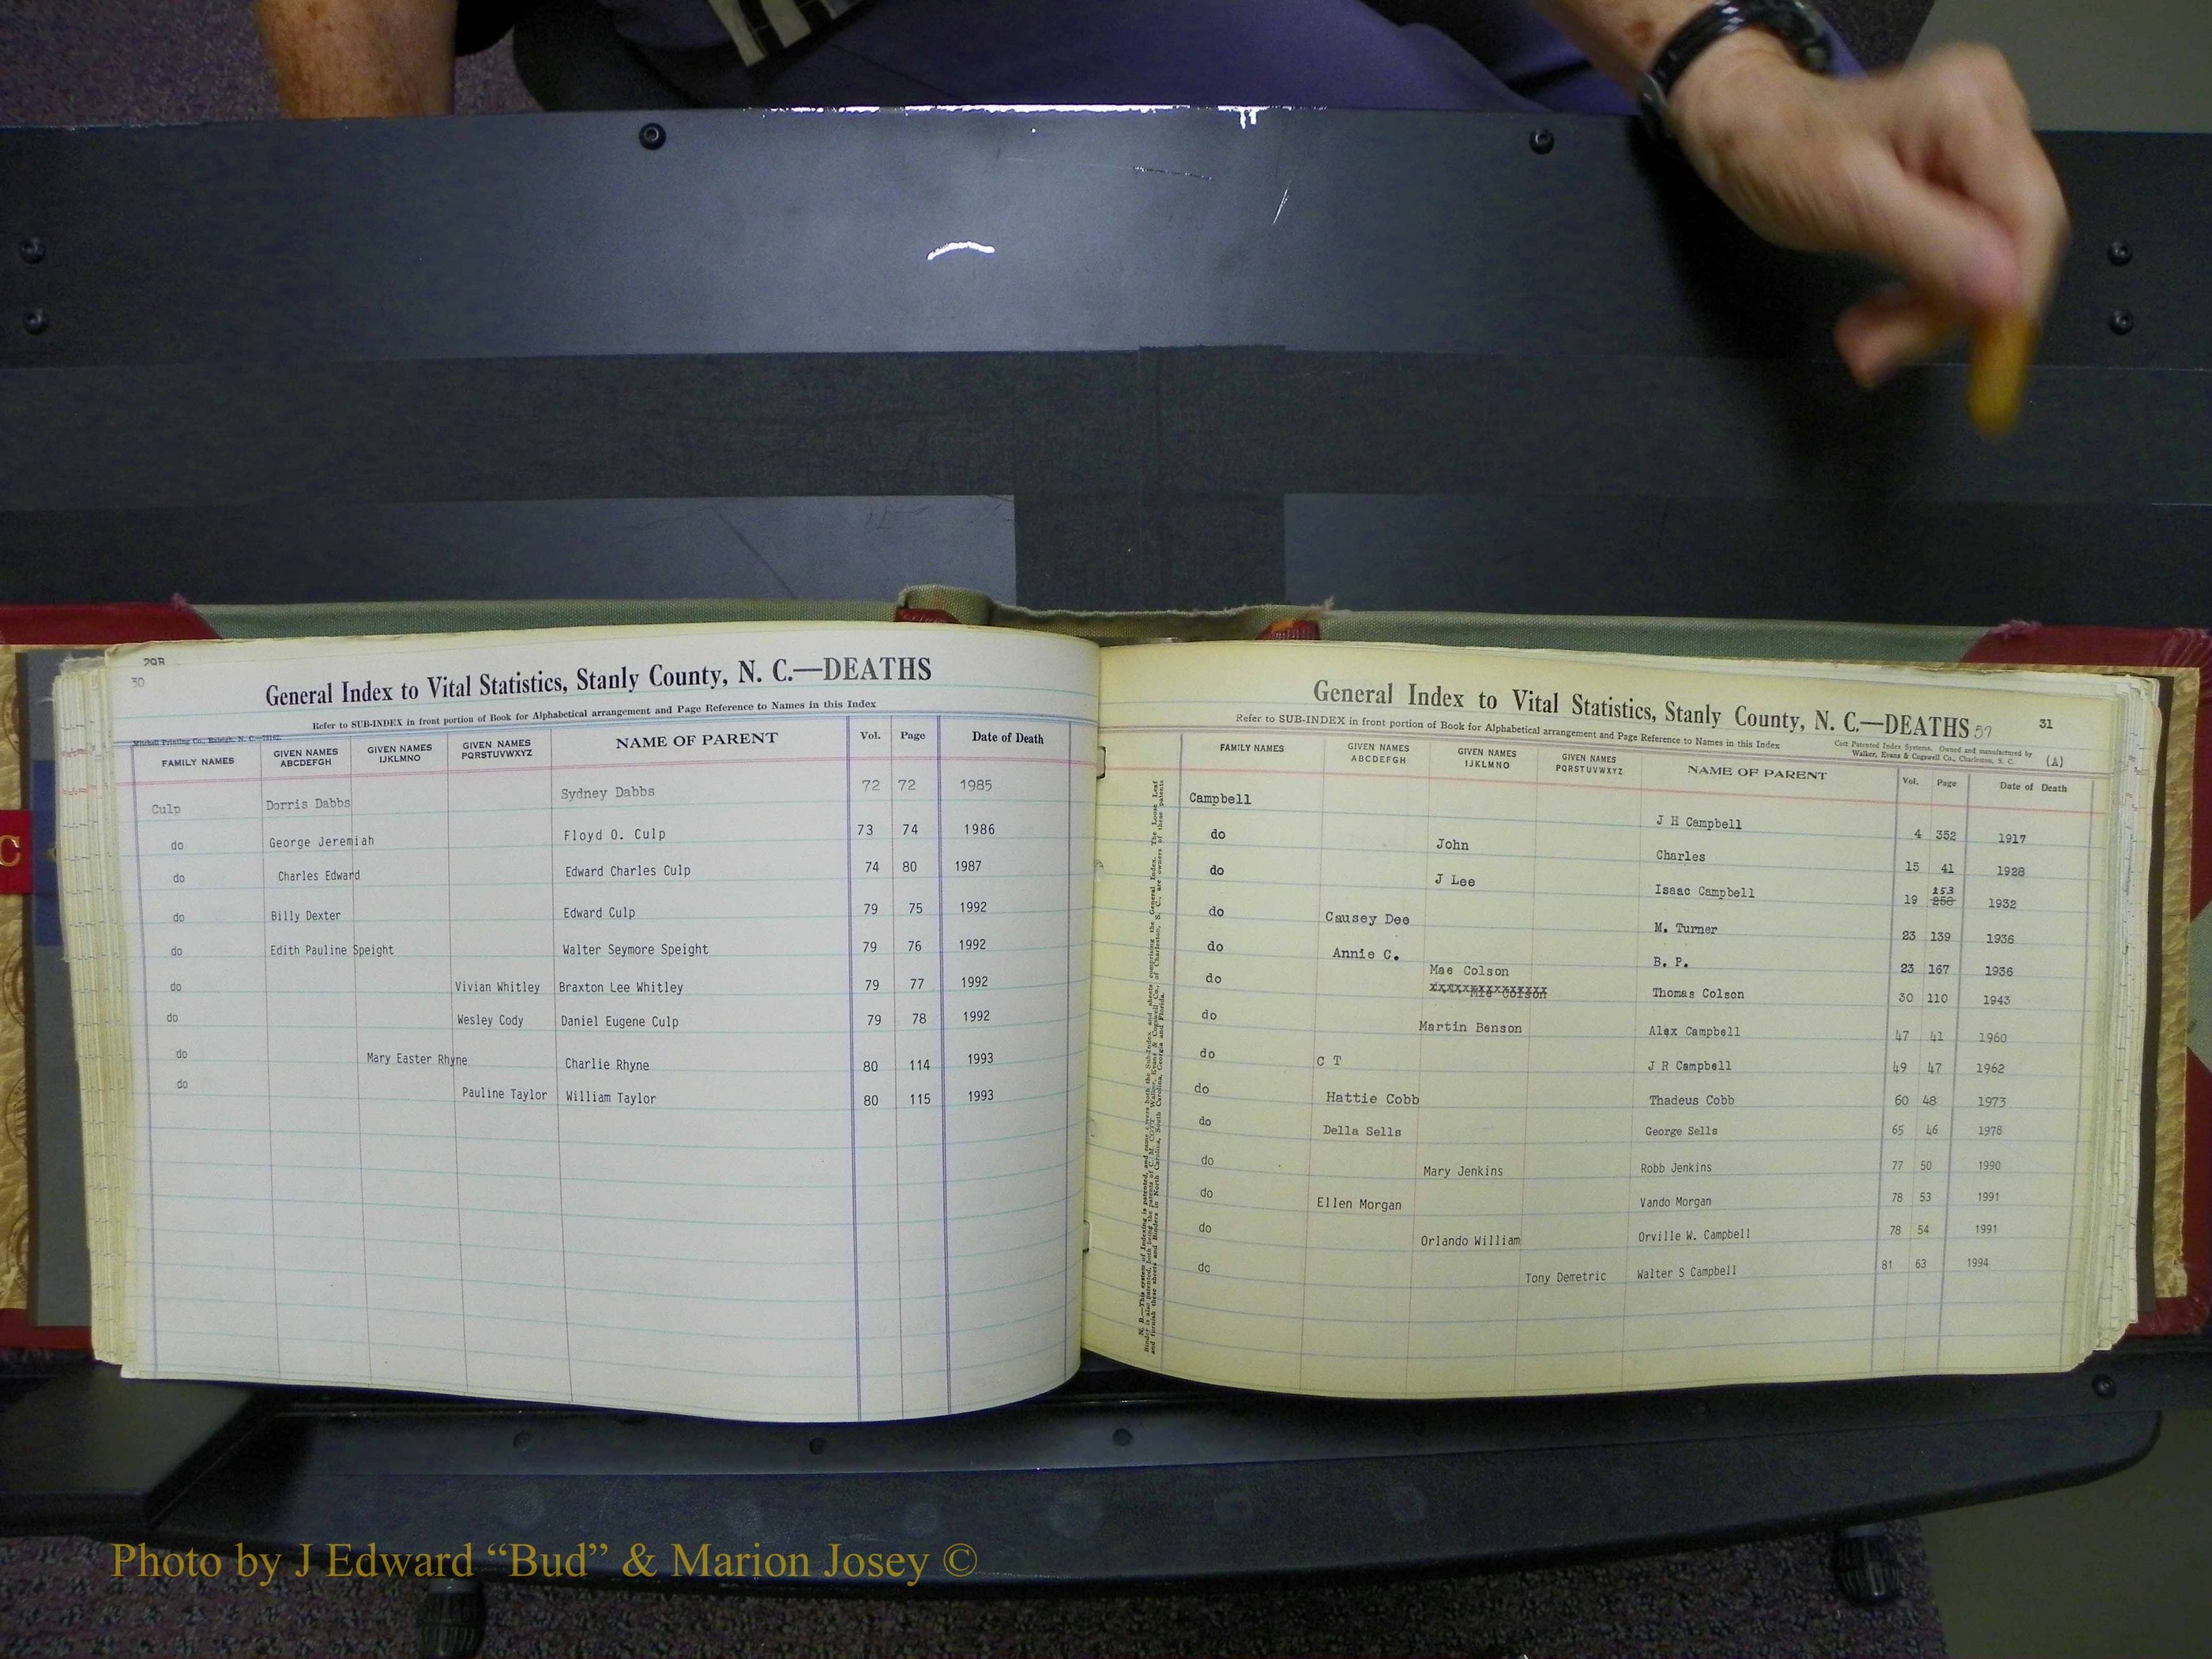 29B
30
General Index to Vital Statistics, Stanly County, N. C.—DEATHS
Refer to SUB-INDEX in front portion of Book for Alphabetical arrangement and Page Reference to Names in this Index
Mitchell Printing Co., Raleigh, N. C.
FAMILY NAMES GIVEN NAMES ABCDEFGH GIVEN NAMES IJKLMNO GIVEN NAMES PQRSTUVWXYZ NAME OF PARENT Vol. Page Date of Death
Culp Dorris Dabbs Sydney Dabbs 72 72 1985
do George Jeremiah Floyd O. Culp 73 74 1986
do Charles Edward Edward Charles Culp 74 80 1987
do Billy Dexter Edward Culp 79 75 1992
do Edith Pauline Speight Walter Seymore Speight 79 76 1992
do Vivian Whitley Braxton Lee Whitley 79 77 1992
do Wesley Cody Daniel Eugene Culp 79 78 1992
do Mary Easter Rhyne Charlie Rhyne 80 114 1993
do Pauline Taylor William Taylor 80 115 1993
General Index to Vital Statistics, Stanly County, N. C.—DEATHS 31
Refer to SUB-INDEX in front portion of Book for Alphabetical arrangement and Page Reference to Names in this Index
Cott Patented Index Systems. Owned and manufactured by
Walker, Evans & Cogswell Co., Charleston, S. C.
(A)
FAMILY NAMES GIVEN NAMES ABCDEFGH GIVEN NAMES IJKLMNO GIVEN NAMES PQRSTUVWXYZ NAME OF PARENT Vol. Page Date of Death
Campbell J H Campbell 4 352 1917
do John Charles 15 41 1928
do J Lee Isaac Campbell 19 253 258 1932
do Causey Dee M. Turner 23 139 1936
do Annie C. B. P. 23 167 1936
do Mae Colson Thomas Colson 30 110 1943
xxxxxxxxxxxxxxxxx
do Martin Benson Alex Campbell 47 41 1960
do C T J R Campbell 49 47 1962
do Hattie Cobb Thadeus Cobb 60 48 1973
do Della Sells George Sells 65 46 1978
do Mary Jenkins Robb Jenkins 77 50 1990
do Ellen Morgan Vando Morgan 78 53 1991
do Orlando William Orville W. Campbell 78 54 1991
dc Tony Demetric Walter S Campbell 81 63 1994
N. B.—This system of Indexing is patented, and same covers both the Sub-Index and sheets comprising the General Index. The Loose Leaf
C
Photo by J Edward “Bud” & Marion Josey ©